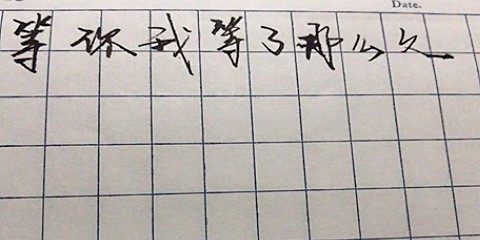 Date.
等你我等了那么久